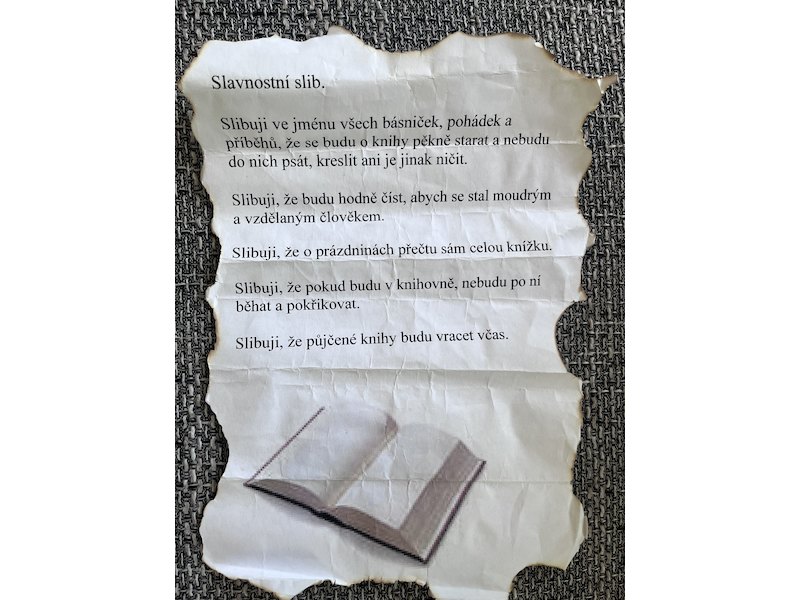 Slavnostní slib.
Slibuji ve jménu všech básniček, pohádek a
příběhů, že se budu o knihy pěkně starat a nebudu
do nich psát, kreslit ani je jinak ničit.
Slibuji, že budu hodně číst, abych se stal moudrým
a vzdělaným člověkem.
Slibuji, že o prázdninách přečtu sám celou knížku.
Slibuji, že pokud budu v knihovně, nebudu po ní
běhat a pokřikovat.
Slibuji, že půjčené knihy budu vracet včas.